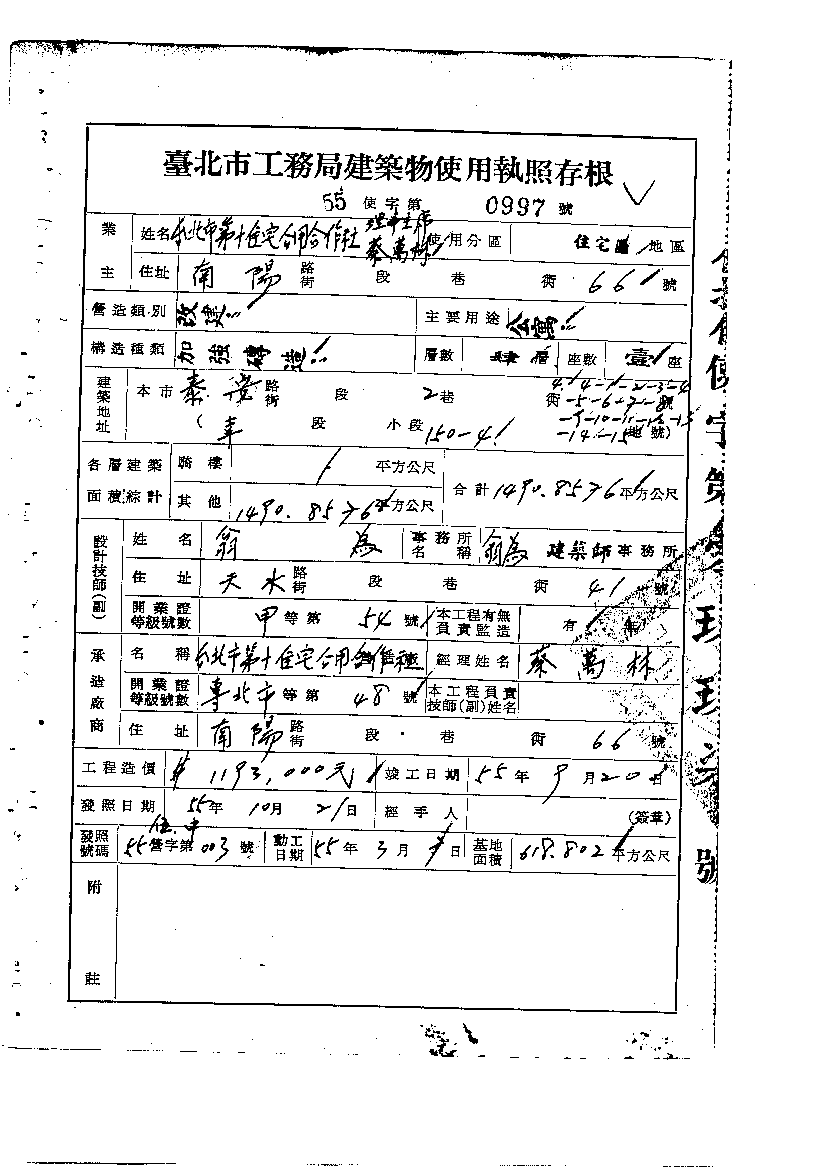 臺北市工務局建築物使用執照存根
55 使字第 0997 號
業主 姓名 台北市第十住宅公用合作社 理事主席 蔡萬林 使用分區 住宅區 地區
住址 南陽 路街 段 巷 衖 66 號
營造類別 改建 主要用途 公寓
構造種類 加強磚造 層數 肆層 座數 壹 座
建築地址 本市 泰安 路街 段 2 巷 衖 4.4-1-2-3-4
-5-6-7-8 號
( 段 小段 150-4 地號)
-9-10-11-12-13
-14-15
各層建築面積綜計 騎樓 / 平方公尺 合計 1490.8576 平方公尺
其他 1490.8576 平方公尺
設計技師(副) 姓名 翁為 事務所名稱 翁為 建築師事務所
住址 天水 路街 段 巷 衖 41 號
開業證等級號數 甲 等第 54 號 本工程有無負責監造 有
承造廠商 名稱 台北市第十住宅公用合作社 經理姓名 蔡萬林
開業證等級號數 專北市 等第 48 號 本工程負責技師(副)姓名
住址 南陽 路街 段 巷 衖 66 號
工程造價 1193,000元 竣工日期 55 年 9 月 20 日
發照日期 55 年 10 月 21 日 經手人 (簽章)
發照號碼 55 營字第 003 號 動工日期 55 年 3 月 日 基地面積 618.802 平方公尺
附註
使字第
號